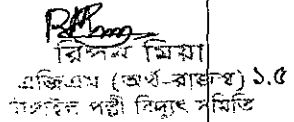 রিপন মিয়া
এজিএম (অর্থ-রাজস্ব) ১.৫
পল্লী বিদ্যুৎ সমিতি